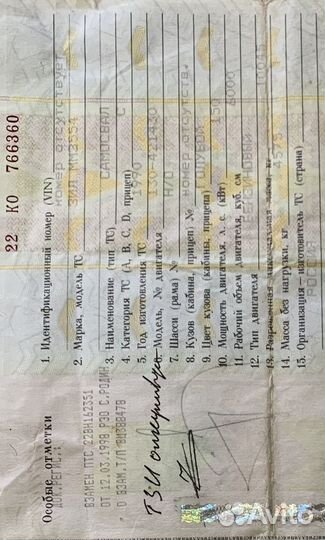 22 КО 766360
1. Идентификационный номер (VIN) номер отсутствует
2. Марка, модель ТС ЗИЛ ММЗ554
3. Наименование (тип ТС) САМОСВАЛ
4. Категория ТС (А, В, С, D, прицеп) С
5. Год изготовления ТС
6. Модель, № двигателя
7. Шасси (рама) № Н/О
8. Кузов (кабина, прицеп) № номер отсутств.
9. Цвет кузова (кабины, прицепа) ГОЛУБОЙ
10. Мощность двигателя, л. с. (кВт) 150
11. Рабочий объем двигателя, куб. см 6000
12. Тип двигателя
13. Разрешенная максимальная масса, кг
14. Масса без нагрузки, кг
15. Организация–изготовитель ТС (страна) РОССИЯ
Особые отметки
ВЗАМЕН ПТС 22ВН162351
ОТ 12.03.1998 РЭО С.РОДИНО
О ВЗАМ.Т/П
ТЗИ
Avito